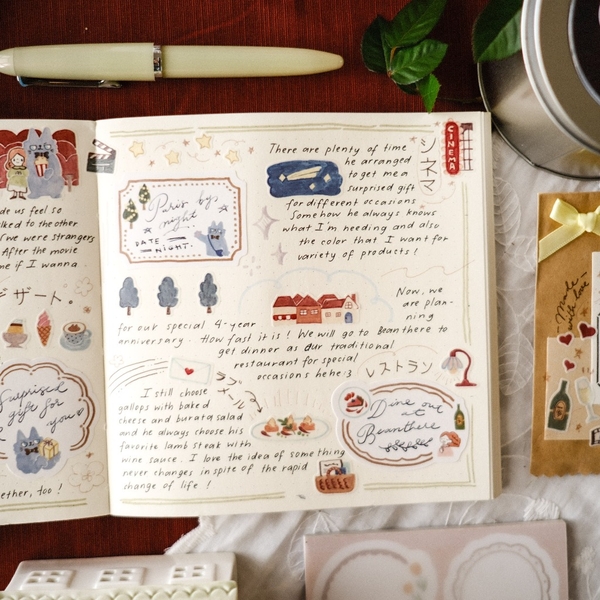 de us feel so
lked to the other
we were strangers
After the movie
me if I wanna
デザート。
Surprised
gift for
you
ether, too !
Paris by
night
DATE
NIGHT.
There are plenty of time
he arranged
to get me a
surprised gift
for different occasions
Somehow he always knows
what I'm needing and also
the color that I want for
variety of products !
シネマ
CINEMA
Now, we
are plan-
ning
for our special 4-year
anniversary. How fast it is ! We will go to Beanthere to
get dinner as our traditional
restaurant for special
occasions hehe :3
レストラン
ラブメール
I still choose
gallops with baked
cheese and burata salad
and he always choose his
favorite lamb steak with
wine sauce. I love the idea of something
never changes in spite of the rapid
change of life !
Dine out
at
Beanthere
Made
with love